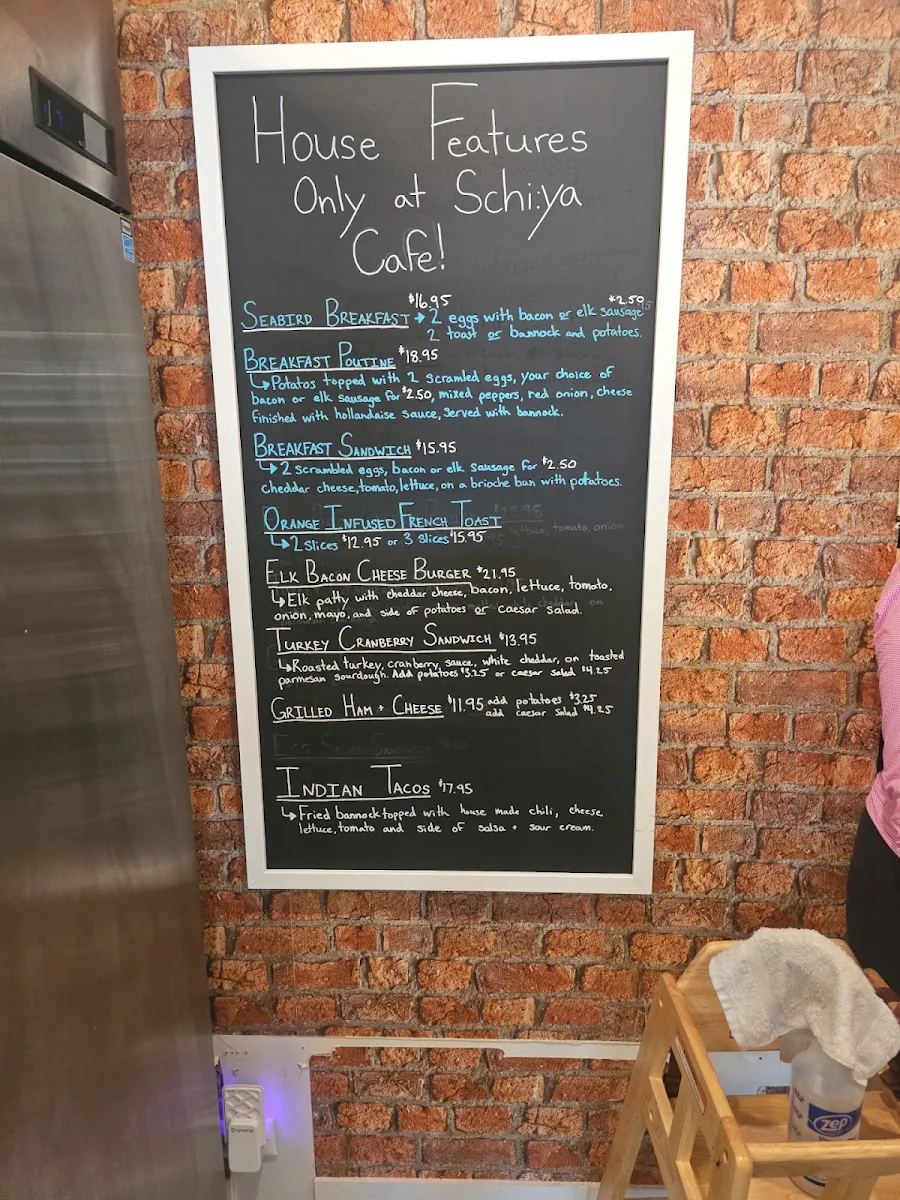 House Features
Only at Schi:ya
Cafe!
SEABIRD BREAKFAST $16.95 → 2 eggs with bacon or elk sausage $2.50
2 toast or bannock and potatoes.
BREAKFAST POUTINE $18.95
↳Potatos topped with 2 scramled eggs, your choice of
bacon or elk sausage for $2.50, mixed peppers, red onion, cheese
finished with hollandaise sauce, served with bannock.
BREAKFAST SANDWICH $15.95
↳2 scrambled eggs, bacon or elk sausage for $2.50
cheddar cheese, tomato, lettuce, on a brioche bun with potatoes.
ORANGE INFUSED FRENCH TOAST
↳2 slices $12.95 or 3 slices $15.95
ELK BACON CHEESE BURGER $21.95
↳Elk patty with cheddar cheese, bacon, lettuce, tomato,
onion, mayo, and side of potatoes or caesar salad.
TURKEY CRANBERRY SANDWICH $13.95
↳Roasted turkey, cranberry sauce, white cheddar, on toasted
parmesan sourdough. Add potatoes $3.25 or caesar salad $4.25
GRILLED HAM + CHEESE $11.95 add potatoes $3.25
add caesar salad $4.25
EGG SALAD SANDWICH
INDIAN TACOS $17.95
↳Fried bannock topped with house made chili, cheese,
lettuce, tomato and side of salsa + sour cream.
zep